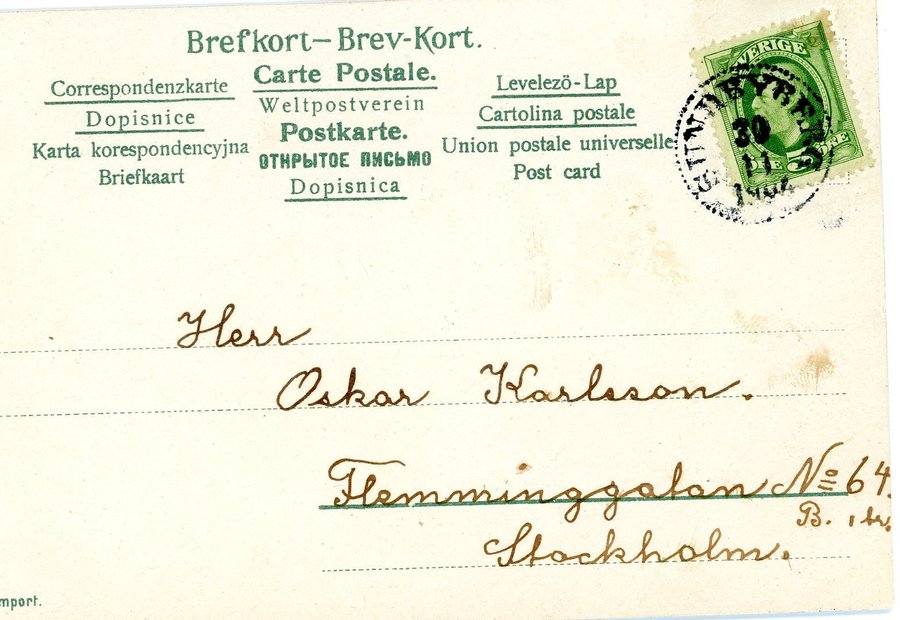 Brefkort–Brev-Kort.
Correspondenzkarte
Dopisnice
Karta korespondencyjna
Briefkaart
Carte Postale.
Weltpostverein
Postkarte.
ОТКРЫТОЕ ПИСЬМО
Dopisnica
Levelező-Lap
Cartolina postale
Union postale universelle
Post card
SVERIGE
30
11
Herr
Oskar Karlsson.
Flemminggatan No 64.
B. 1 tr.
Stockholm.
mport.